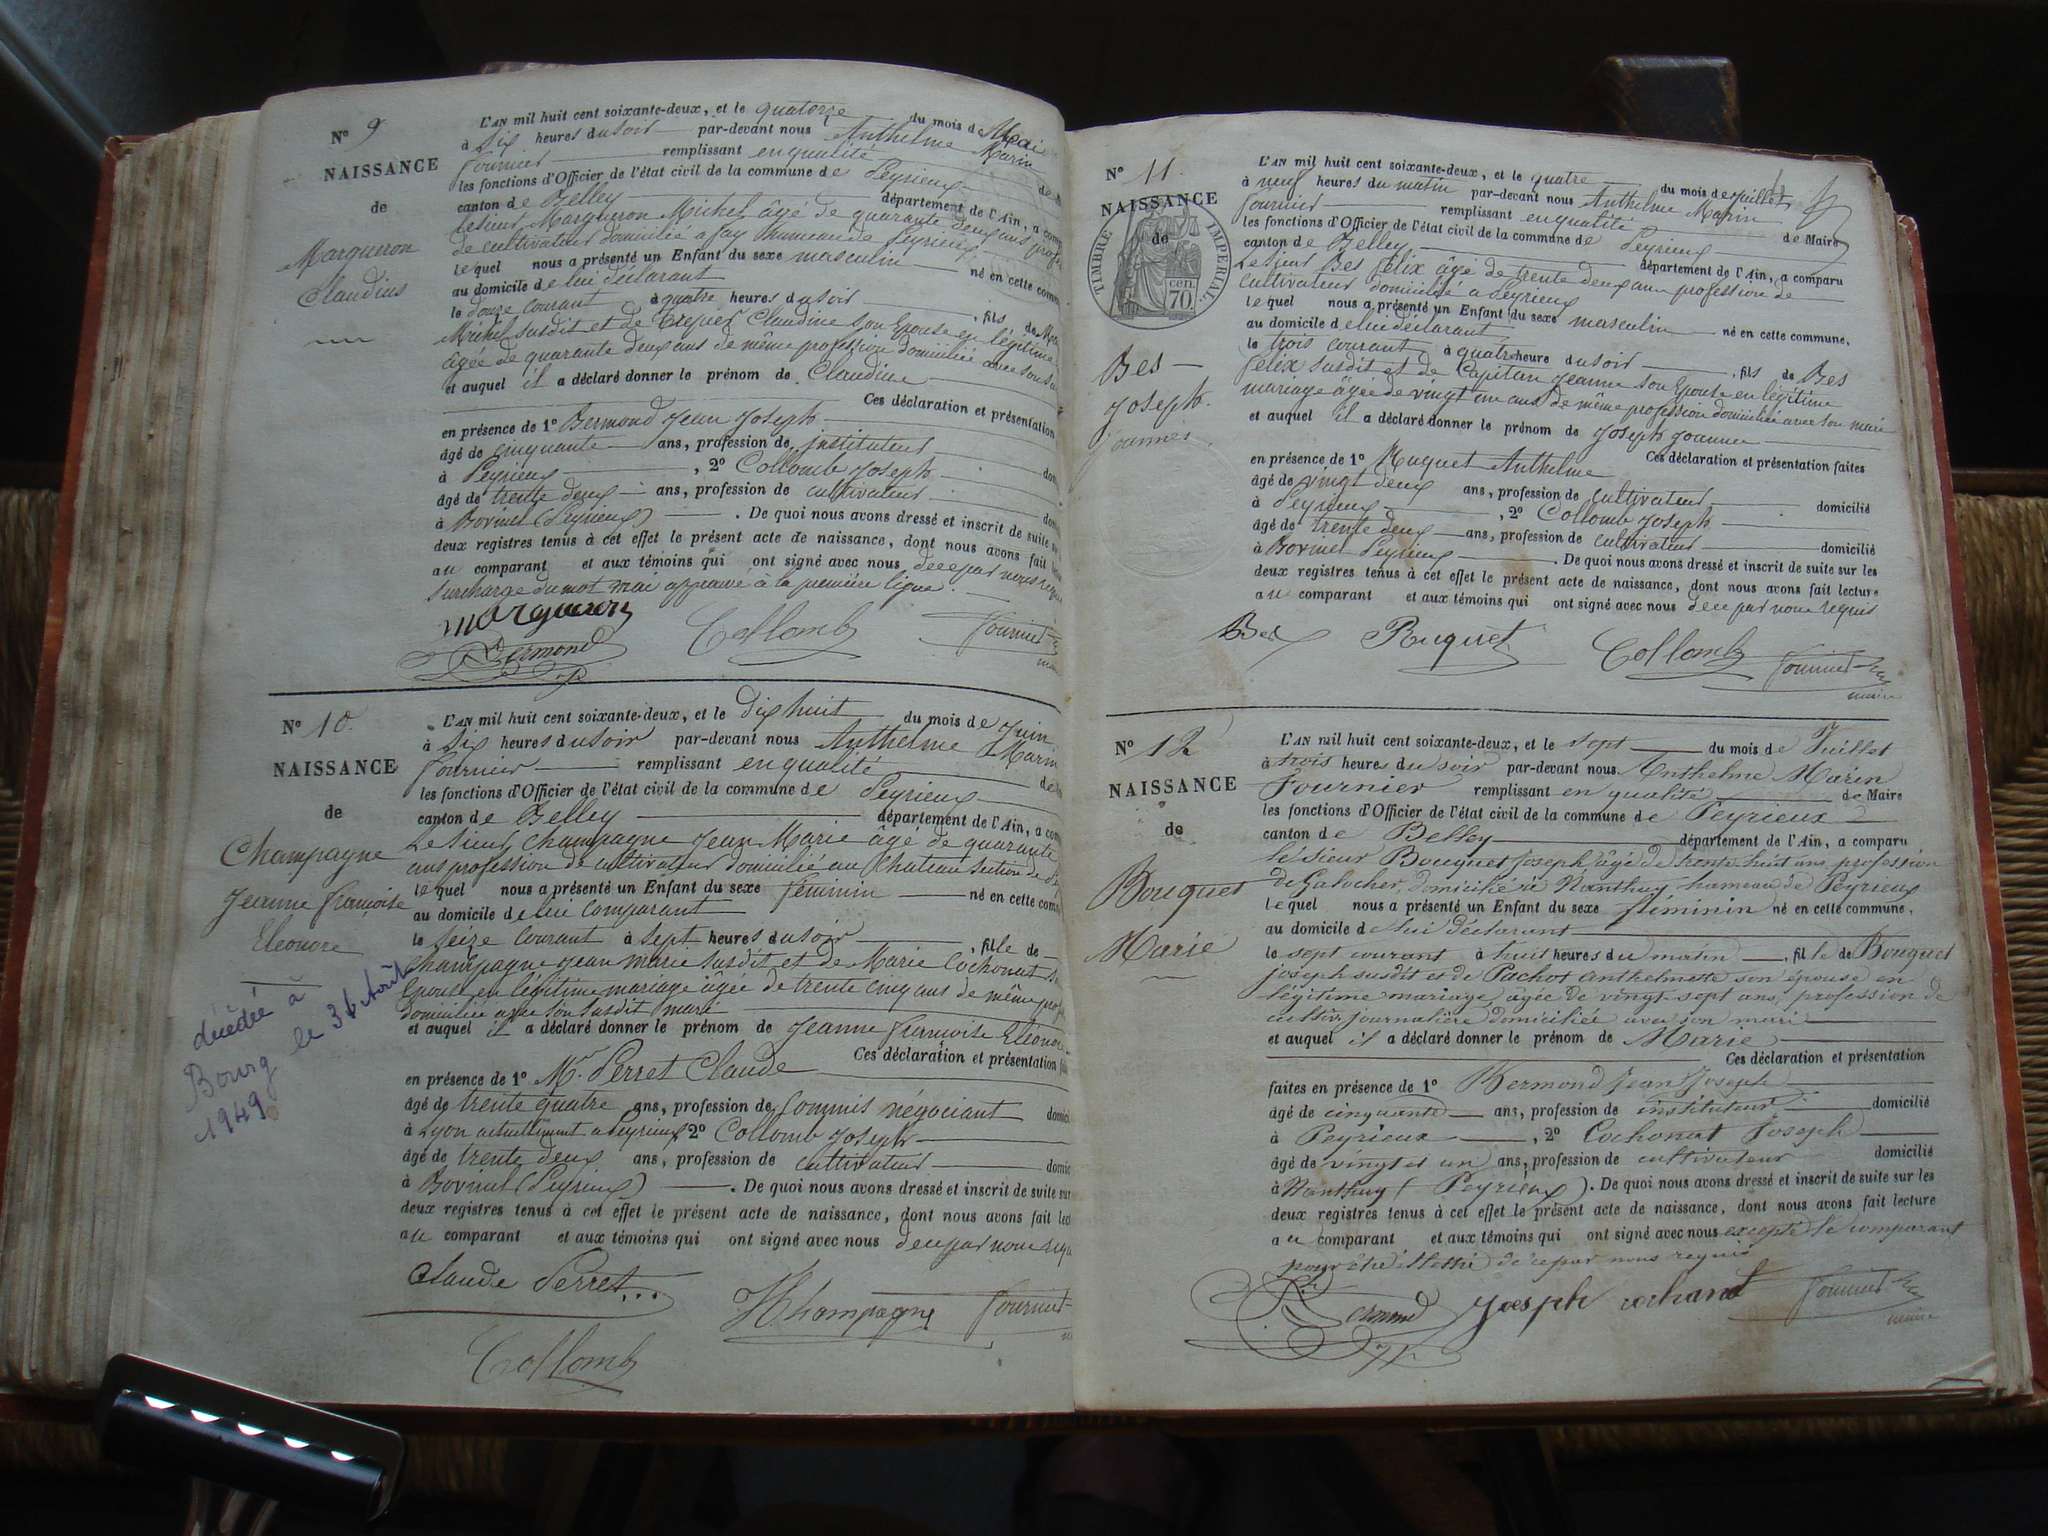 N° 9
NAISSANCE
de
Margueron
Claudius
L'AN mil huit cent soixante-deux, et le quatorze du mois de Mai
à six heures du soir par-devant nous Anthelme Marin
fournier remplissant en qualité de
les fonctions d'Officier de l'état civil de la commune de Peyrieux
canton de Belley département de l'Ain, a
le sieur Margueron Michel âgé de quarante deux ans
de cultivateur domicilié a fay hameau de Peyrieux
lequel nous a présenté un Enfant du sexe masculin né en cette
au domicile de lui déclarant
le douze courant à quatre heures du soir , fils de
Michel susdit et de Crépier Claudine son Epouse en légitime
âgée de quarante deux ans de même profession domiciliée avec son
et auquel il a déclaré donner le prénom de Claudius
Ces déclaration et présentation
en présence de 1° Bermond Jean Joseph
âgé de cinquante ans, profession de instituteur
à Peyrieux , 2° Collomb Joseph
âgé de trente deux ans, profession de cultivateur
à Bovinel (Peyrieux) . De quoi nous avons dressé et inscrit de suite
deux registres tenus à cet effet le présent acte de naissance, dont nous avons fait
au comparant et aux témoins qui ont signé avec nous de ce par nous
Surcharge du mot mai approuvé à la première ligne.
margueron
Collomb
fournier
Bermond
N° 10.
NAISSANCE
de
Champagne
Jeanne françoise
Eléonore
décédée à
Bourg le 31 Août
1949
L'AN mil huit cent soixante-deux, et le dix huit du mois de Juin
à six heures du soir par-devant nous Anthelme Marin
fournier remplissant en qualité
les fonctions d'Officier de l'état civil de la commune de Peyrieux
canton de Belley département de l'Ain, a
Le sieur Champagne Jean Marie âgé de quarante
ans profession de cultivateur domicilié au Chateau section de
lequel nous a présenté un Enfant du sexe féminin né en cette
au domicile de lui comparant
le seize courant à sept heures du soir , fille de
Champagne Jean Marie susdit et de Marie Cochonat
Epouse en légitime mariage âgée de trente cinq ans de même
domiciliée avec son susdit mari
et auquel il a déclaré donner le prénom de Jeanne françoise Eléonore
Ces déclaration et présentation
en présence de 1° Mr. Perret Claude
âgé de trente quatre ans, profession de Commis négociant
à Lyon actuellement a Peyrieux 2° Collomb Joseph
âgé de trente deux ans, profession de cultivateur
à Bovinel (Peyrieux) . De quoi nous avons dressé et inscrit de suite sur
deux registres tenus à cet effet le présent acte de naissance, dont nous avons fait
au comparant et aux témoins qui ont signé avec nous de ce par nous
Claude Perret
Champagne
fournier
Collomb
N° 11.
NAISSANCE
de
TIMBRE IMPERIAL
CEN. 70.
Bes
Joseph
Joannès
L'AN mil huit cent soixante-deux, et le quatre du mois de Juillet
à neuf heures du matin par-devant nous Anthelme Marin
fournier remplissant en qualité de Maire
les fonctions d'Officier de l'état civil de la commune de Peyrieux
canton de Belley département de l'Ain, a comparu
Le sieur Bes félix âgé de trente deux ans profession de
cultivateur domicilié a Peyrieux
lequel nous a présenté un Enfant du sexe masculin né en cette commune,
au domicile de lui déclarant
le trois courant à quatre heure du soir , fils de Bes
félix susdit et de Capitan Jeanne son Epouse en légitime
mariage âgée de vingt un ans de même profession domiciliée avec son mari
et auquel il a déclaré donner le prénom de Joseph Joannes
Ces déclaration et présentation faites
en présence de 1° Ruquet Anthelme
âgé de vingt deux ans, profession de cultivateur domicilié
à Peyrieux , 2° Collomb Joseph
âgé de trente deux ans, profession de cultivateur domicilié
à Bovinel Peyrieux . De quoi nous avons dressé et inscrit de suite sur les
deux registres tenus à cet effet le présent acte de naissance, dont nous avons fait lecture
au comparant et aux témoins qui ont signé avec nous de ce par nous requis
Bes Ruquet Collomb fournier
maire
N° 12
NAISSANCE
de
Bouquet
Marie
L'AN mil huit cent soixante-deux, et le sept du mois de Juillet
à trois heures du soir par-devant nous Anthelme Marin
Fournier remplissant en qualité de Maire
les fonctions d'Officier de l'état civil de la commune de Peyrieux
canton de Belley département de l'Ain, a comparu
le sieur Bouquet Joseph âgé de trente huit ans profession
de Galocher, domicilié à Nanthuy hameau de Peyrieux
lequel nous a présenté un Enfant du sexe féminin né en cette commune,
au domicile de lui déclarant
le sept courant à huit heures du matin , fille de Bouquet
joseph susdit et de Pachot anthelmette son épouse en
légitime mariage, âgée de vingt sept ans, profession de
cultiv. journalière domiciliée avec son mari
et auquel il a déclaré donner le prénom de Marie
Ces déclaration et présentation
faites en présence de 1° Bermond Jean Joseph
âgé de cinquante ans, profession de instituteur domicilié
à Peyrieux , 2° Cochonat Joseph
âgé de vingt et un ans, profession de cultivateur domicilié
à Nanthuy (Peyrieux). De quoi nous avons dressé et inscrit de suite sur les
deux registres tenus à cet effet le présent acte de naissance, dont nous avons fait lecture
au comparant et aux témoins qui ont signé avec nous excepté le comparant
pour être illettré de ce par nous requis
Bermond Joseph cochonat fournier
maire